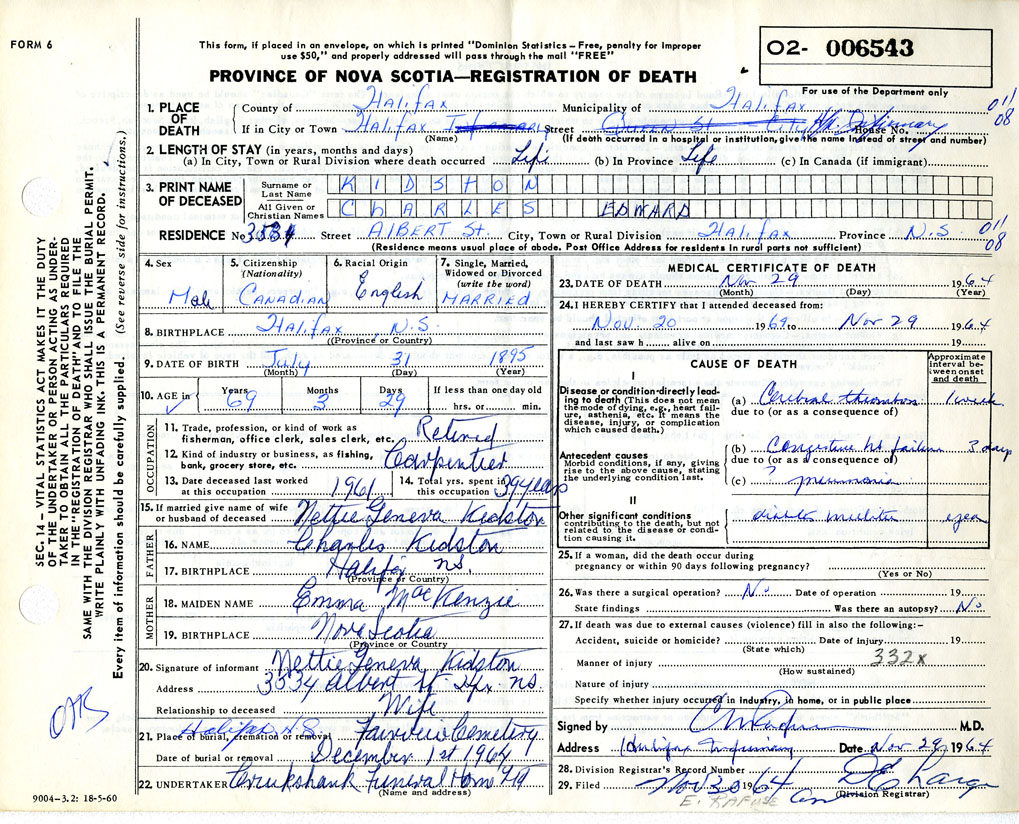 FORM 6
This form, if placed in an envelope, on which is printed "Dominion Statistics – Free, penalty for improper
use $50," and properly addressed will pass through the mail "FREE"
O2- 006543
PROVINCE OF NOVA SCOTIA—REGISTRATION OF DEATH
For use of the Department only
1. PLACE OF DEATH
County of Halifax Municipality of Halifax
011
08
If in City or Town Halifax Street Queen St House No.
(Name) (If death occurred in a hospital or institution, give the name instead of street and number)
2. LENGTH OF STAY (in years, months and days)
(a) In City, Town or Rural Division where death occurred Life (b) In Province Life (c) In Canada (if immigrant)
3. PRINT NAME OF DECEASED
Surname or Last Name KIDSTON
All Given or Christian Names CHARLES EDWARD
RESIDENCE No. Street ALBERT St. City, Town or Rural Division Halifax Province N.S
011
08
(Residence means usual place of abode. Post Office Address for residents in rural parts not sufficient)
4. Sex Male
5. Citizenship (Nationality) CANADIAN
6. Racial Origin English
7. Single, Married, Widowed or Divorced (write the word) MARRIED
8. BIRTHPLACE Halifax, N.S.
((Province or Country)
9. DATE OF BIRTH July 31 1895
(Month) (Day) (Year)
10. AGE in Years 69 Months 3 Days 29 If less than one day old hrs. or min.
OCCUPATION
11. Trade, profession, or kind of work as fisherman, office clerk, sales clerk, etc. Retired
12. Kind of industry or business, as fishing, bank, grocery store, etc. Carpentier
13. Date deceased last worked at this occupation 1961
14. Total yrs. spent in this occupation 39 years
15. If married give name of wife or husband of deceased Nettie Geneva Kidston
FATHER
16. NAME Charles Kidston
17. BIRTHPLACE Halifax ns.
(Province or Country)
MOTHER
18. MAIDEN NAME Emma MacKenzie
19. BIRTHPLACE Nova Scotia
(Province or Country)
20. Signature of informant Nettie Geneva Kidston
Address 3534 Albert St Hfx ns.
Relationship to deceased Wife
21. Place of burial, cremation or removal Halifax N.S. Fairview Cemetery
Date of burial or removal December 1st 1964
22. UNDERTAKER Cruikshank Funeral Home
(Name and address)
9004–3.2: 18-5-60
MEDICAL CERTIFICATE OF DEATH
23. DATE OF DEATH Nov 29 1964
(Month) (Day) (Year)
24. I HEREBY CERTIFY that I attended deceased from:
Nov. 20 1964 to Nov 29 1964
and last saw h alive on 19
CAUSE OF DEATH
Approximate interval between onset and death
I
Disease or condition directly leading to death (This does not mean the mode of dying, e.g., heart failure, asthenia, etc. It means the disease, injury, or complication which caused death.)
(a) Cerebral thrombosis 1 week
due to (or as a consequence of)
Antecedent causes
Morbid conditions, if any, giving rise to the above cause, stating the underlying condition last.
(b) Congestive ht failure 3 days
due to (or as a consequence of)
(c) ? pneumonia
II
Other significant conditions
contributing to the death, but not related to the disease or condition causing it.
year
25. If a woman, did the death occur during
pregnancy or within 90 days following pregnancy?
(Yes or No)
26. Was there a surgical operation? No Date of operation 19
State findings Was there an autopsy? No
27. If death was due to external causes (violence) fill in also the following:–
Accident, suicide or homicide? Date of injury 19
(State which)
332x
Manner of injury
(How sustained)
Nature of injury
Specify whether injury occured in industry, in home, or in public place
Signed by M.D.
Address Halifax Infirmary Date Nov 29 1964
28. Division Registrar's Record Number
29. Filed Nov 30 1964
(Division Registrar)
SEC. 14 – VITAL STATISTICS ACT MAKES IT THE DUTY
OF THE UNDERTAKER OR PERSON ACTING AS UNDER-
TAKER TO OBTAIN ALL THE PARTICULARS REQUIRED
IN THE "REGISTRATION OF DEATH" AND TO FILE THE
SAME WITH THE DIVISION REGISTRAR WHO SHALL ISSUE THE BURIAL PERMIT.
WRITE PLAINLY WITH UNFADING INK. THIS IS A PERMANENT RECORD.
Every item of information should be carefully supplied. (See reverse side for instructions.)